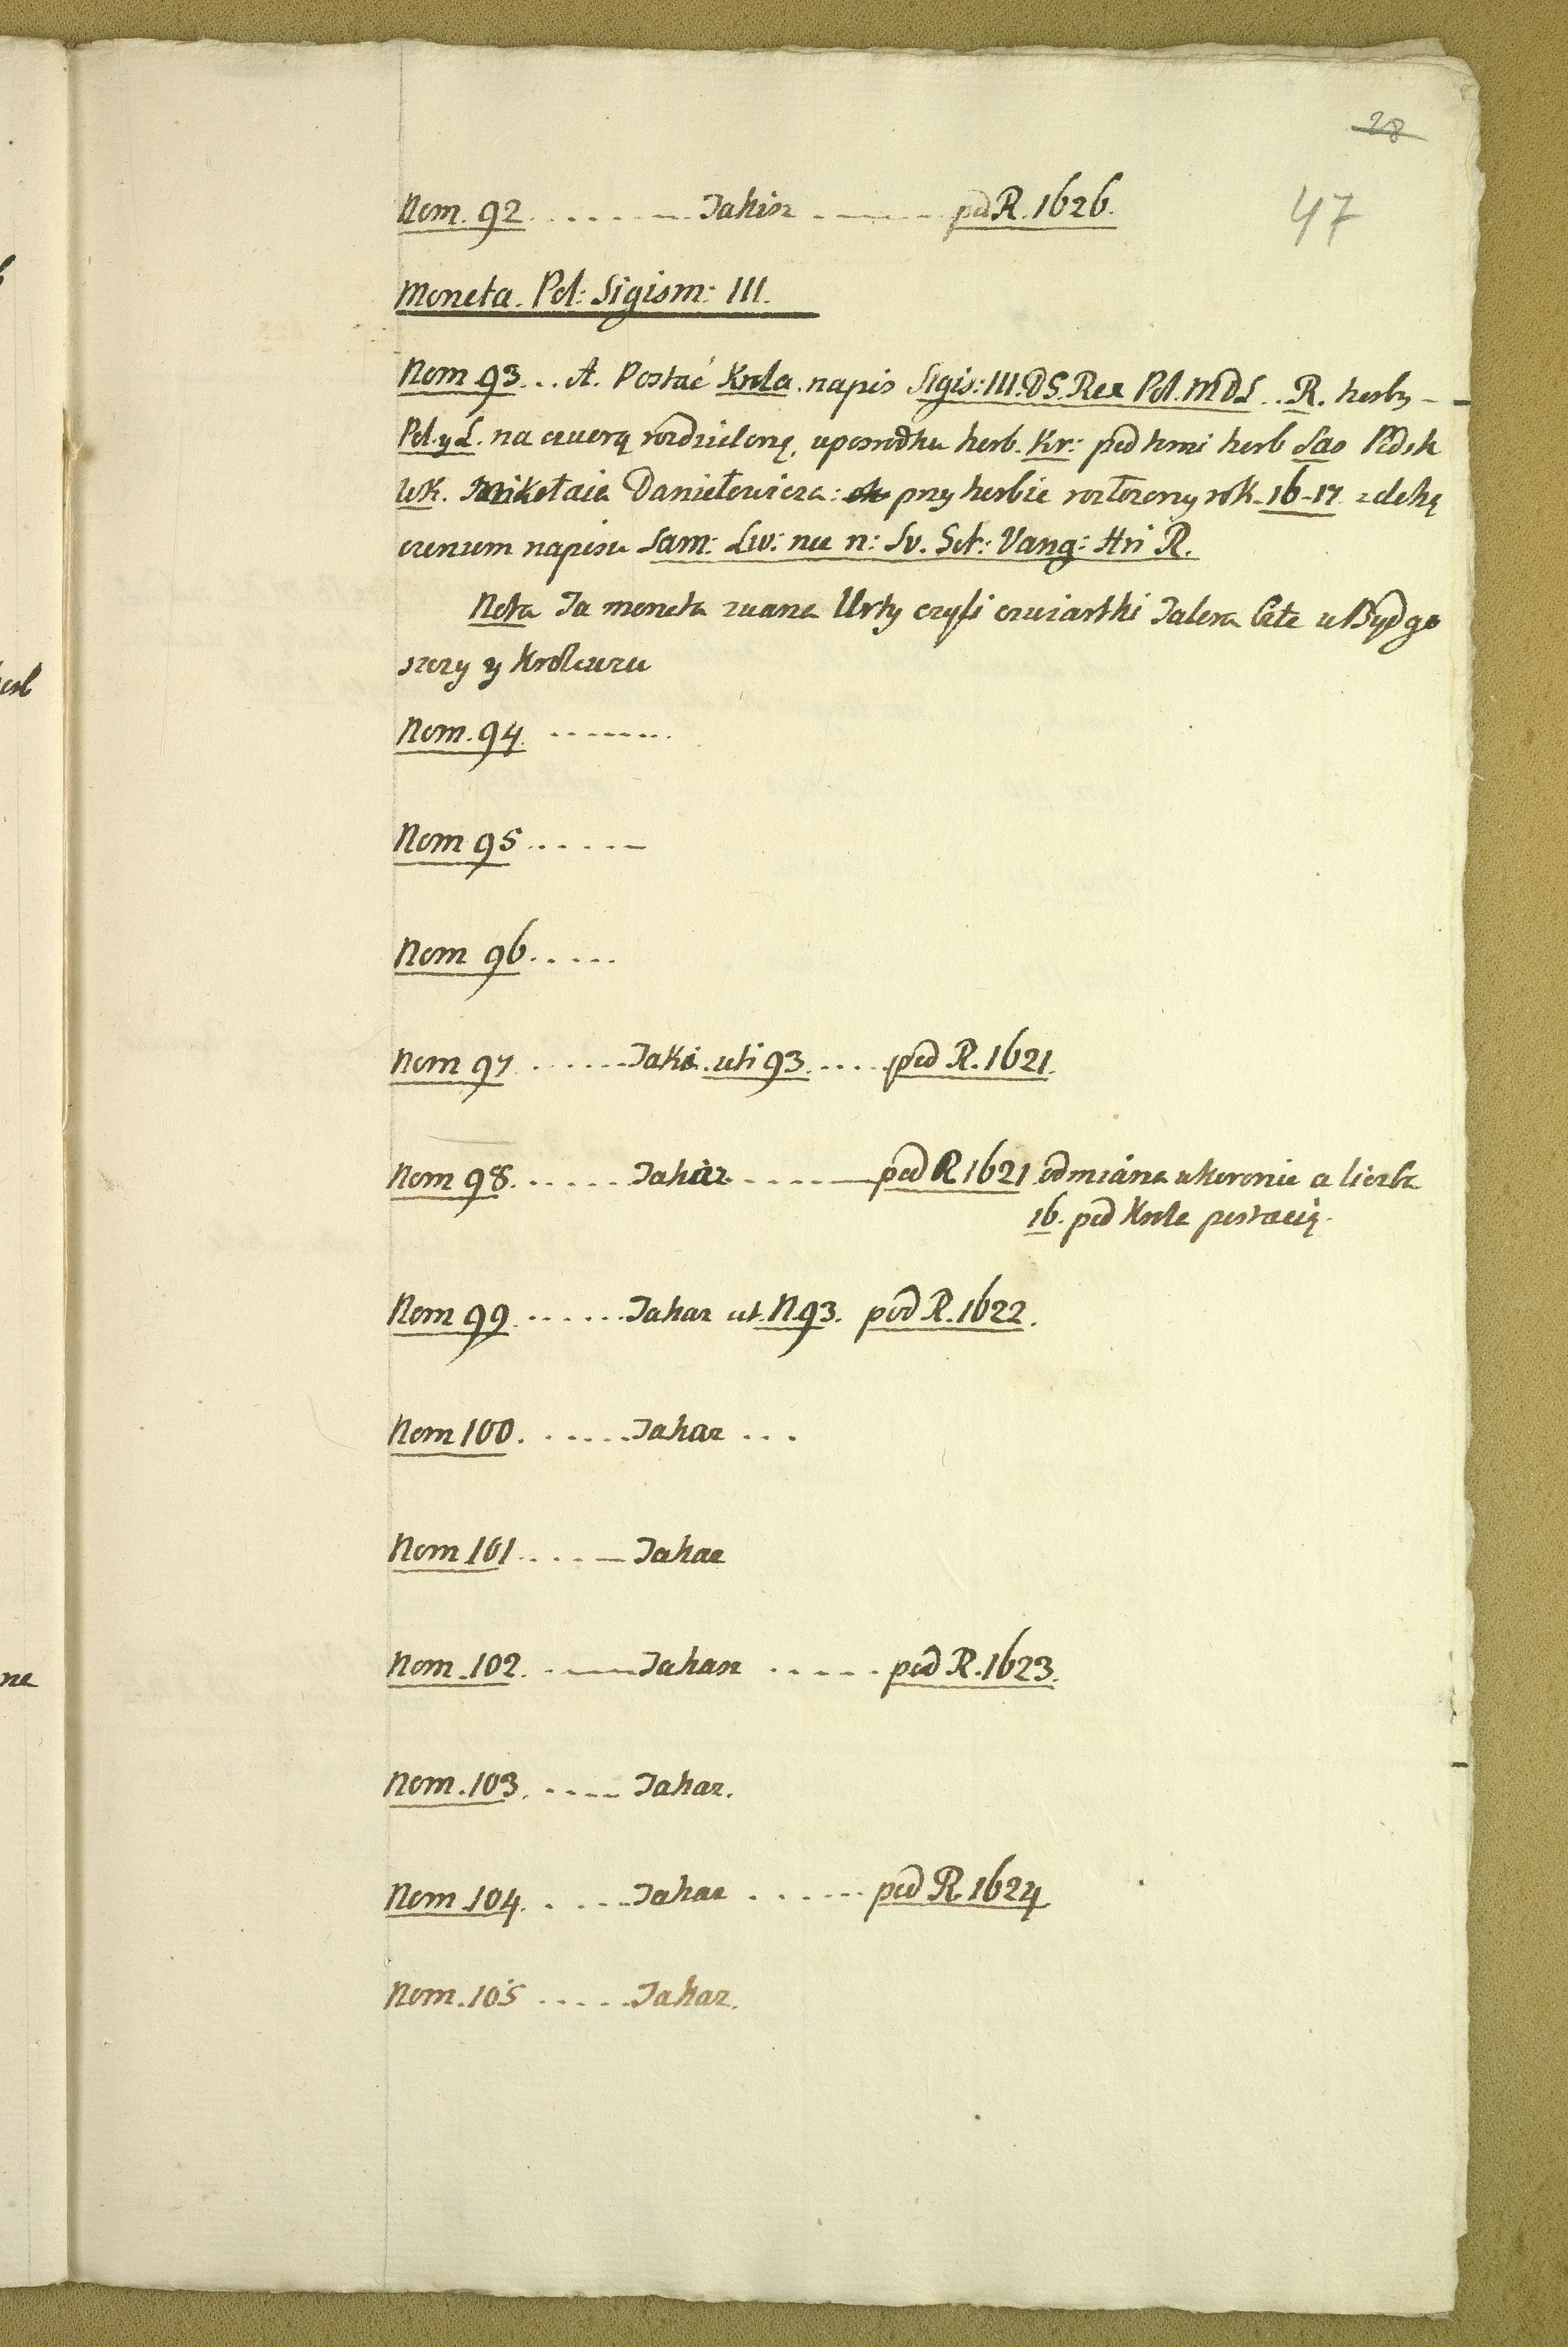 28
Nom. 92 ........ Takisz ........ pod R. 1626.
47
Moneta. Pol: Sigism: III.
Nom 93... A. Postać Krola. napis Sigis: III. D G. Rex Pol. M D L.. R. herby -
Pol. y L. na czwerą rozdzielonę, uposrodku herb. Kr: pod temi herb Sas Podsk
WK. Mikołaia Daniełowicza: przy herbie rozłożony rok - 16 - 17 z doką
czeniem napisu Sam: Liv: nec n: Sv. Got: Vang: Hri R.
Nota Ta moneta zwana Urty czyli czwiartki Talera bite w Bydgo
szczy y Krolewcu
Nom. 94 ........
Nom 95 ......
Nom 96.....
Nom 97 ...... Taki. uti 93..... pod R. 1621.
Nom 98...... Takaż ...... pod R 1621 odmiana w koronie a liczba
16. pod Krola postacią.
Nom 99 ...... Takaz ut. N. 93. pod R. 1622.
Nom 100. ..... Takaz ...
Nom 101..... Takaz
Nom. 102. .... Takasz ..... pod R. 1623.
Nom. 103. .... Takaz.
Nom 104. .... Takaz ...... pod R. 1624
Nom. 105 ..... Takaz.